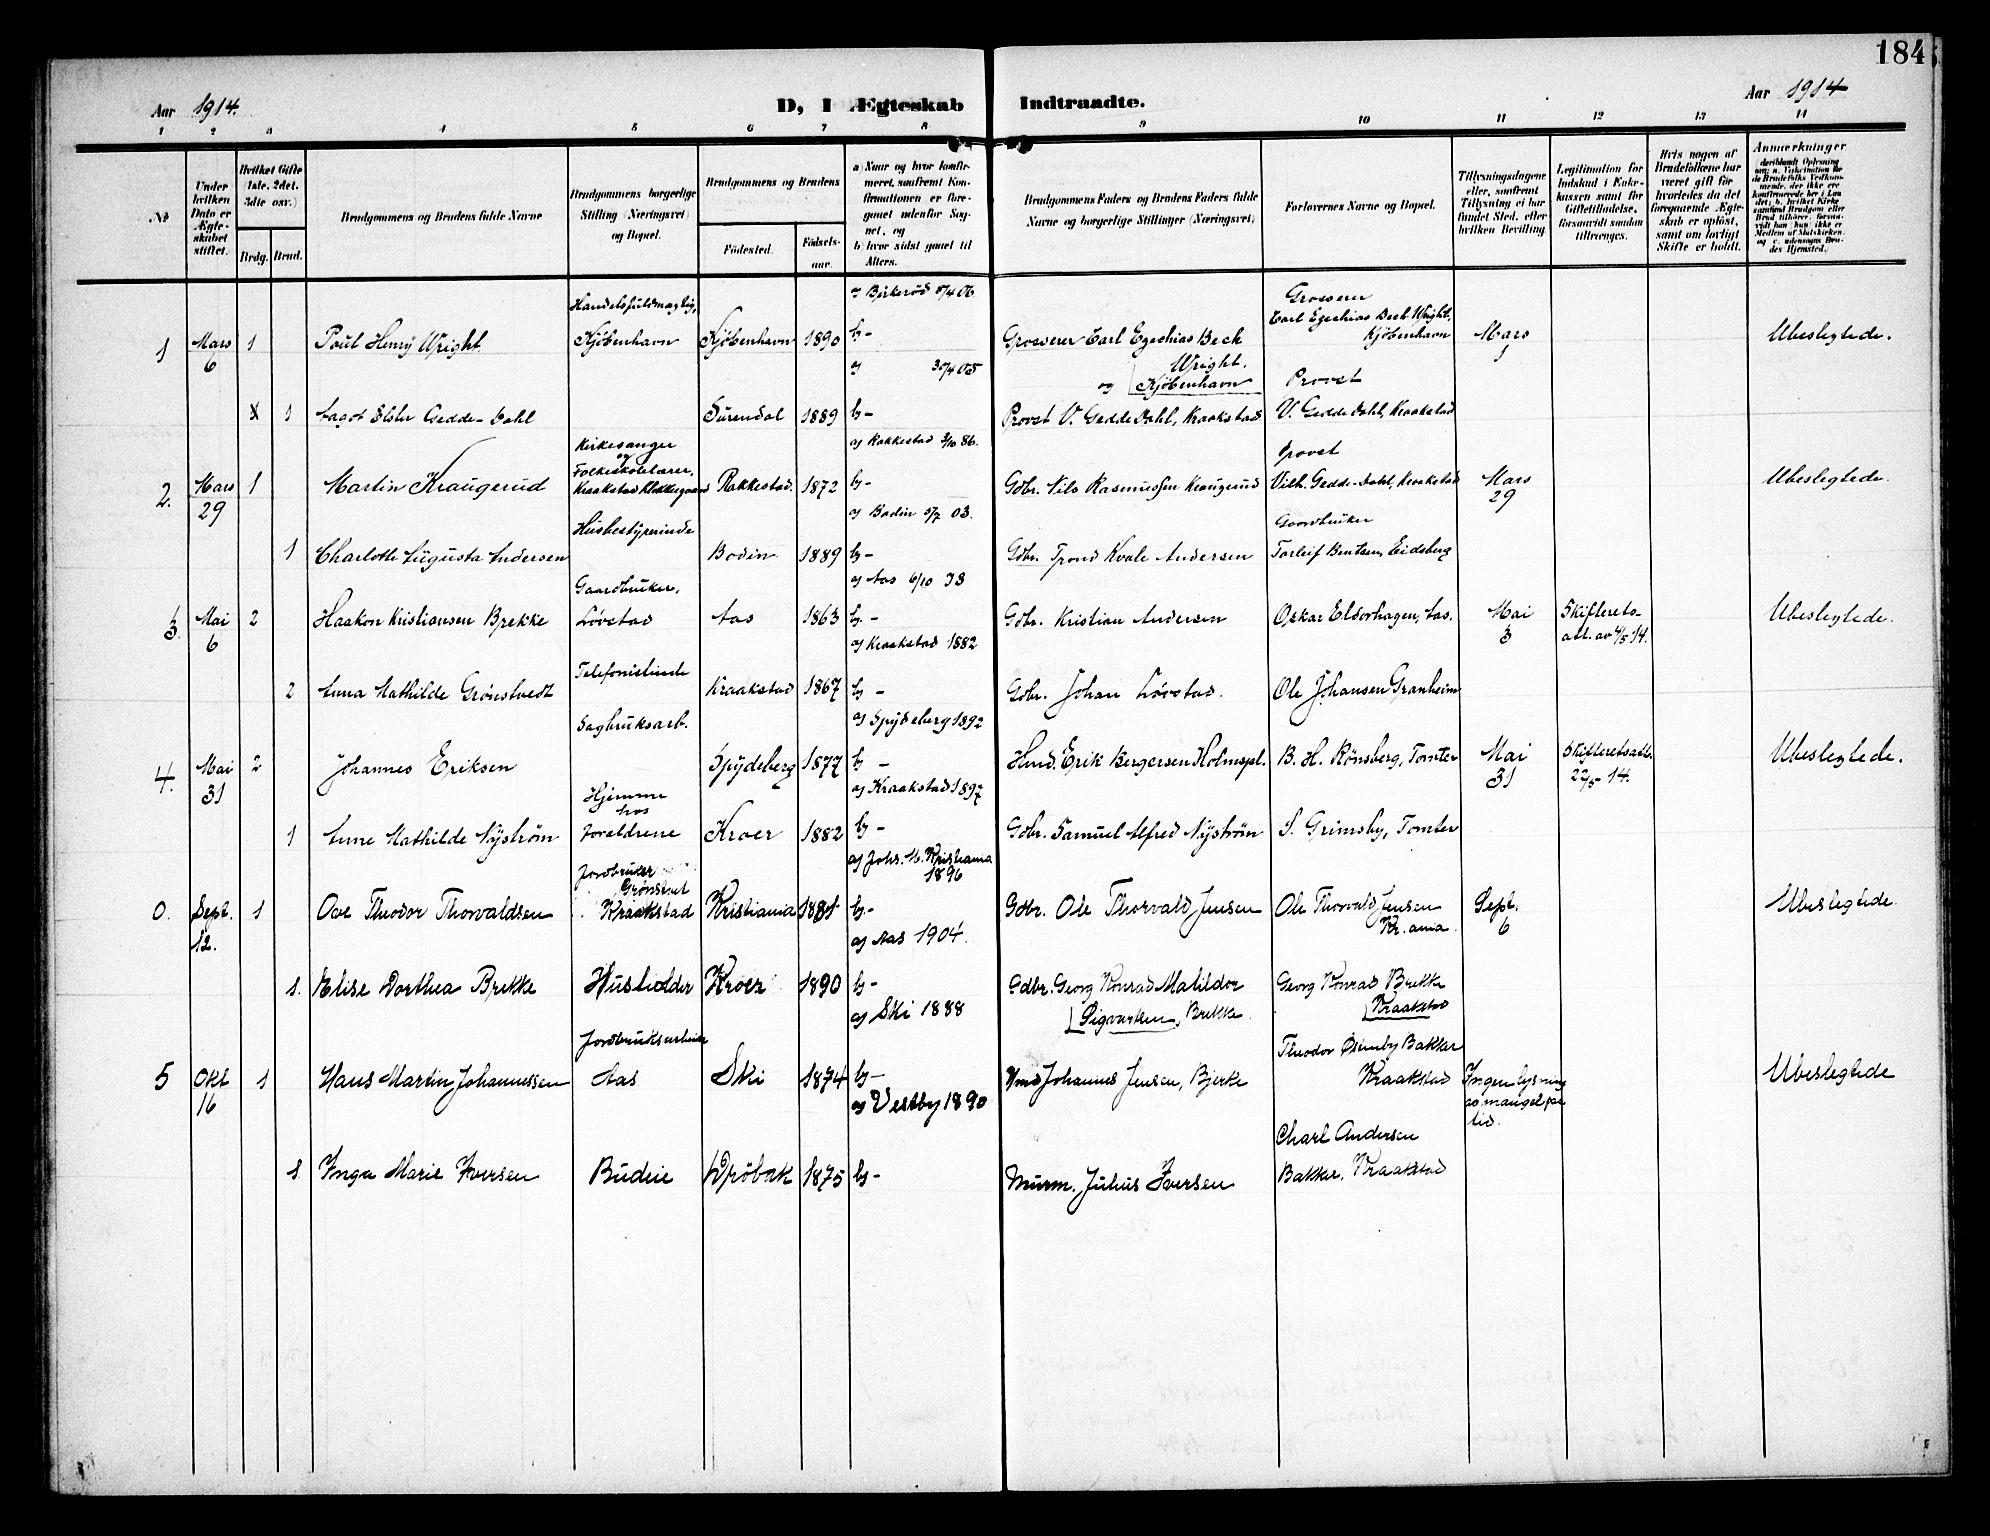 184
Aar 1914.
D, I Ægteskab Indtraadte.
Aar 1914
1 2 3 4 5 6 7 8 9 10 11 12 13 14
№
Under hvilken Dato er Ægteskabet stiftet.
Hvilket Gifte (1ste, 2det, 3die osv.)
Brdg. Brud.
Brudgommens og Brudens fulde Navne
Brudgommens borgerlige Stilling (Næringsvei) og Bopæl.
Brudgommens og Brudens
Födested. Födsels-aar.
a) Naar og hvor konfirmeret, saafremt Konfirmationen er foregaaet udenfor Sognet, og
b) hvor sidst gaaet til Alters.
Brudgommens Faders og Brudens Faders fulde Navne og borgerlige Stillinger (Næringsvei)
Forlovernes Navne og Bopæl.
Tillysningsdagene eller, saafremt Tillysning ei har fundet Sted, efter hvilken Bevilling.
Legitimation for Indskud i Enkekassen samt for Giftetilladelse, forsaavidt saadan tiltrænges.
Hvis nogen af Brudefolkene har været gift før hvorledes da det foregaaende Ægteskab er opløst, samt om lovligt Skifte er holdt.
Anmerkninger
Handelsfuldmægtig, a) Birkeröd 8/4 06 Grosserer
1 Mars 6 1 Poul Henry Wright Kjöbenhavn Kjöbenhavn 1890 b- Grosserer Carl Egechias Beck Wright. og Kjöbenhavn Carl Egechias Beck Wright, Kjöbenhavn Mars 1 Ubeslegtede.
a) 30/4 05 Provst
1 Aagot Elster Gedde-Dahl Surendal 1889 b- Provst V. Gedde Dahl, Kraakstad V. Gedde Dahl, Kraakstad
Kirkesanger og Folkeskolelærer, a) Rakkestad 3/10 86. Provst
2. Mars 29 1 Martin Kraugerud Kraakstad Klokkergaard Rakkestad. 1872 b- Gdbr. Nils Rasmussen Kraugerud Vilh. Gedde-Dahl, Kraakstad Mars 29 Ubeslegtede.
Husbestyrerinde a) Bodin 5/7 03. Gaardbruker
1 Charlotte Augusta Andersen Bodin 1889 b- Gdbr. Trond Kvale Andersen Torleif Bentsen, Eidsberg
Gaardbruker, a) Aas 6/10 78
3. Mai 6 2 Haakon Kristiansen Brekke Lövstad Aas 1863 b.- Gdbr. Kristian Andersen Oskar Eldorhagen, Aas. Mai 3 Skifterets-att. av 4/5 14. Ubeslegtede.
Telefonistinde a) Kraakstad 1882
2 Anna Mathilde Grönstvedt Kraakstad 1867 b- Gdbr. Johan Lövstad. Ole Johansen Granheim
Sagbruksarb. a) Spydeberg 1892
4. Mai 31 2 Johannes Eriksen Spydeberg 1877 b- Husd. Erik Bergersen Holmspl. B. H. Rönsberg, Tomter Mai 31 Skifteretsatt. 22/5 14. Ubeslegtede.
Hjemme hos a) Kraakstad 1897
1 Anne Mathilde Nyström Foreldrene Kroer 1882 b- Gdbr. Samuel Alfred Nyström S. Grimsby, Tomter
Jordbruker Grönstvet a) Johs. M. Kristiania 1896
0. Sept. 12. 1 Ove Theodor Thorvaldsen Kraakstad Kristiania 1881 b.- Gdbr. Ole Thorvald Jensen Ole Thorvald Jensen Kr.ania. Sept. 6 Ubeslegtede.
a) Aas 1904.
1. Elise Dorthea Brekke Husholder Kroer 1890 b- Gdbr. Georg Konrad Matildor Sigvartsen, Brekke Georg Konrad Brekke Kraakstad
Jordbruksarbeider a) Ski 1888 Theodor Österby Bakker
5 Okt 16 1 Hans Martin Johannessen Aas Ski 1874 b- Hmd Johannes Jensen, Bjerke Kraakstad Ingen lysning av mangel paa tid. Ubeslegtede
a) Vestby 1890 Charl Andersen
1. Inga Marie Iversen Budeie Dröbak 1875 b- Murm. Julius Iversen Bakker, Kraakstad